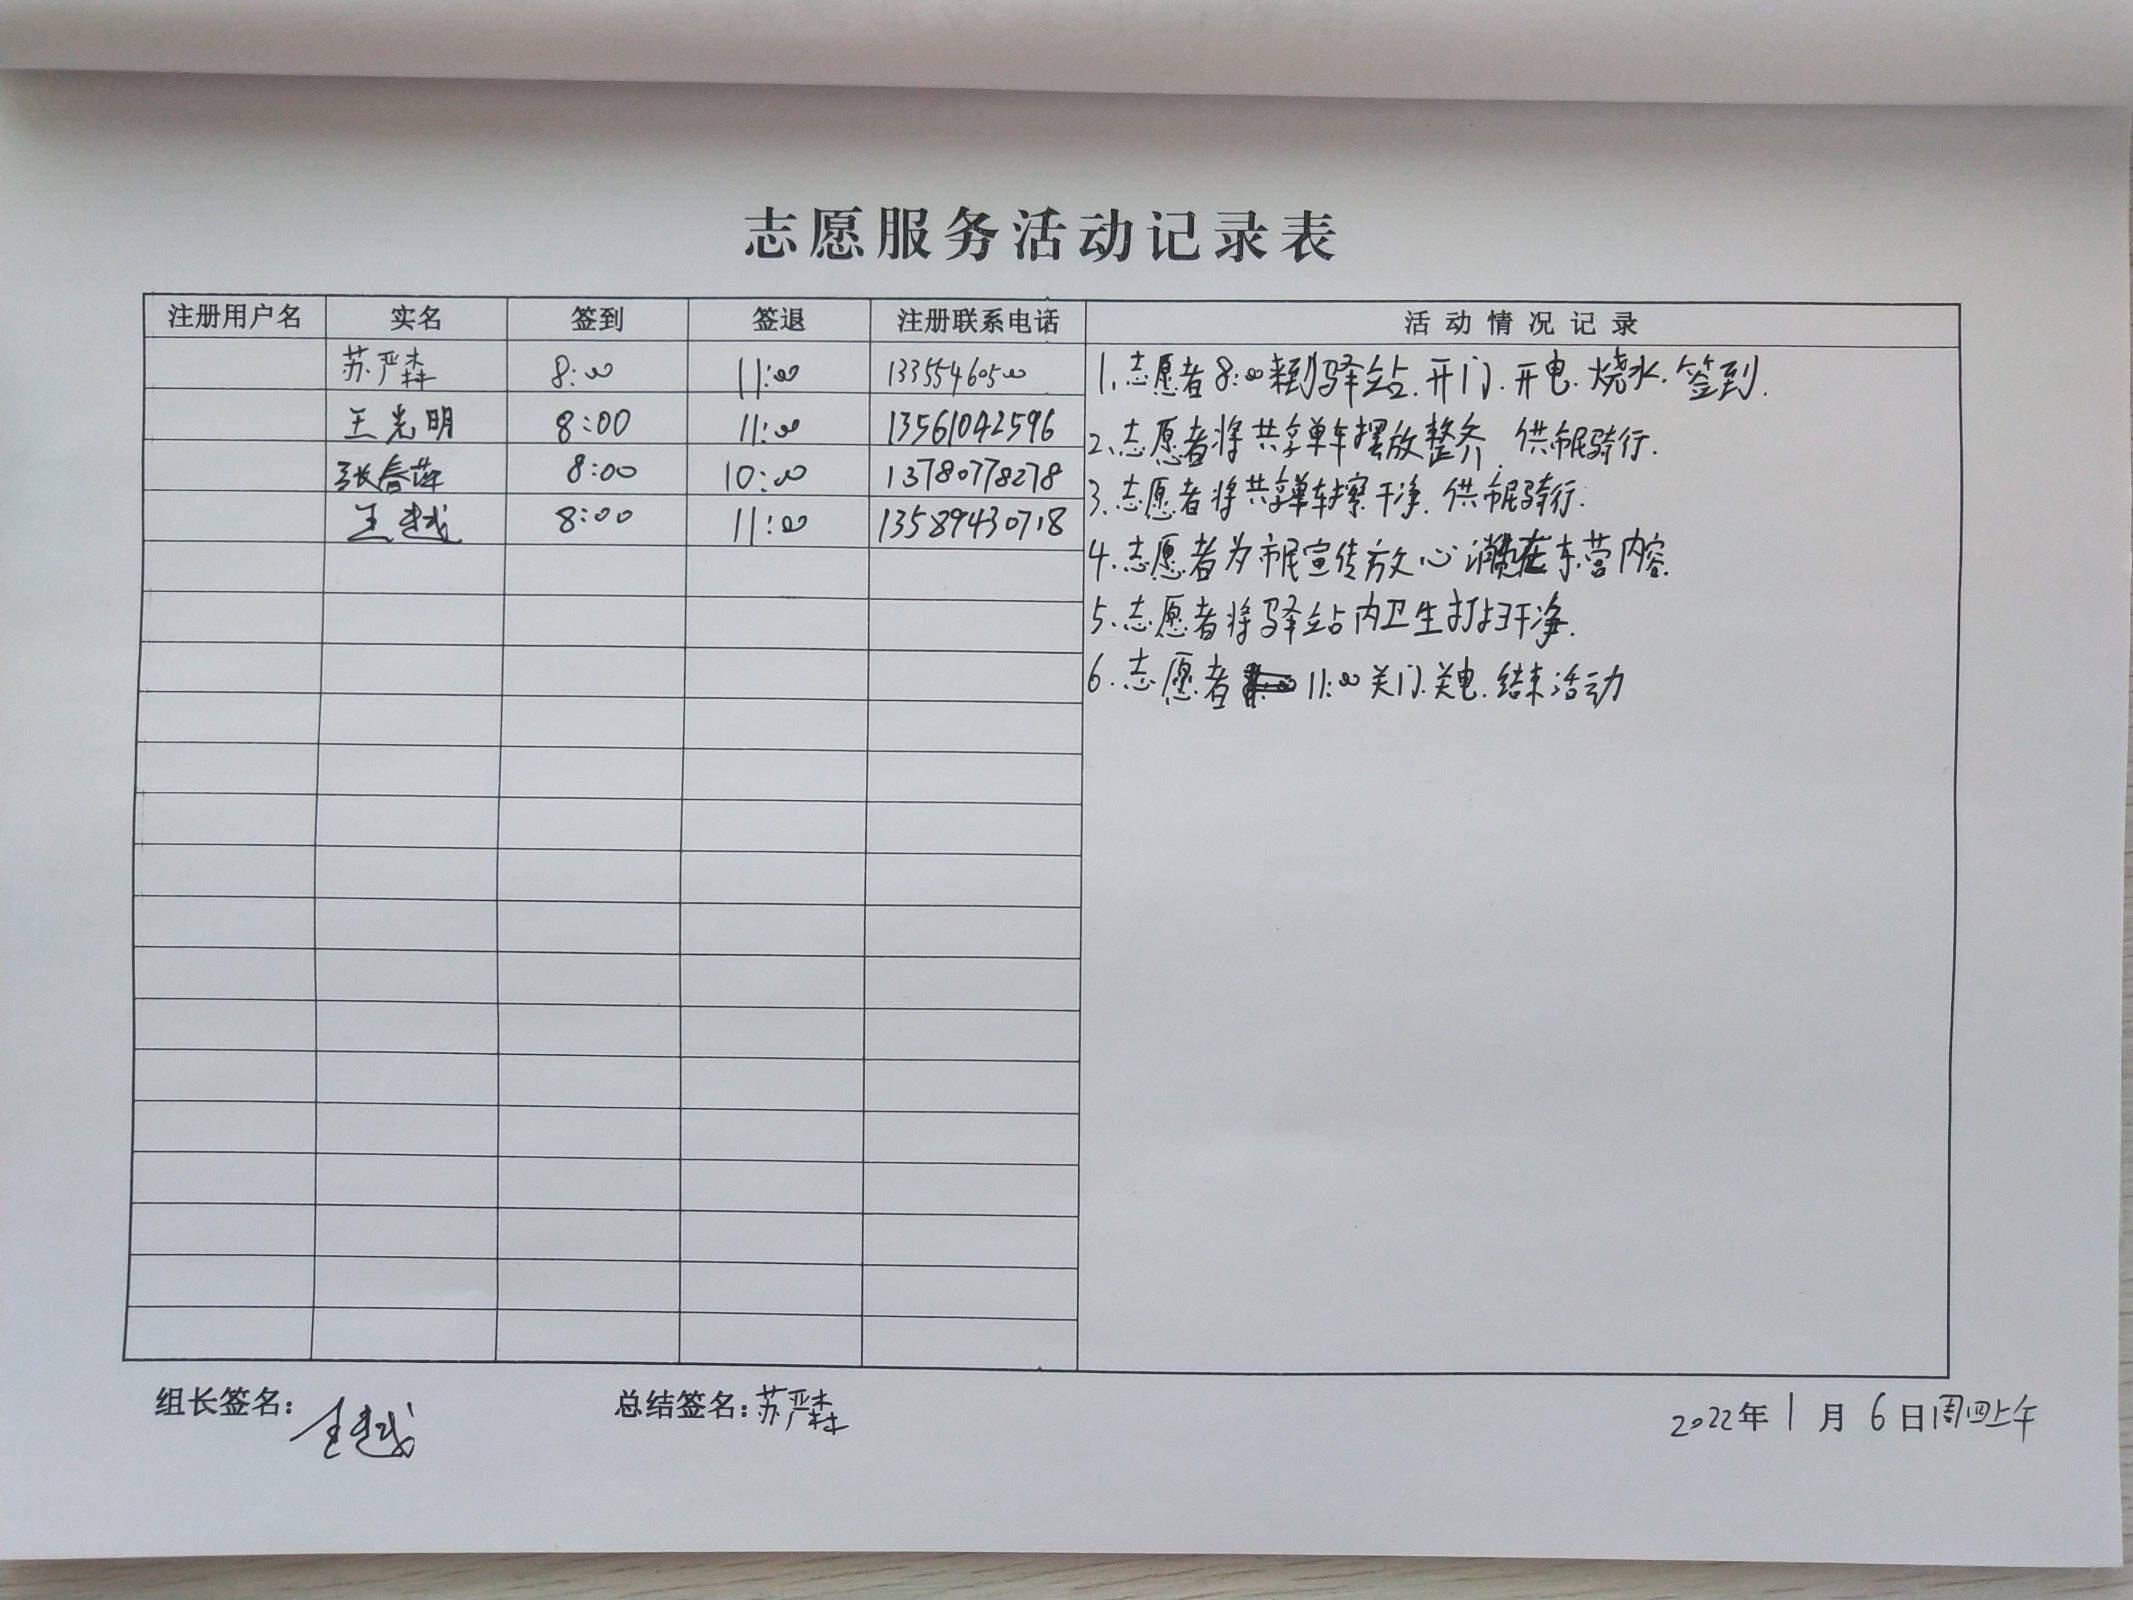 志愿服务活动记录表
注册用户名 实名 签到 签退 注册联系电话 活动情况记录
苏严森 8:00 11:00 13355460500
王光明 8:00 11:00 13561042596
张春萍 8:00 10:00 13780778278
王越 8:00 11:00 13589430718
1.志愿者8:00来到驿站.开门.开电.烧水.签到.
2.志愿者将共享单车摆放整齐.供市民骑行.
3.志愿者将共享单车擦干净.供市民骑行.
4.志愿者为市民宣传放心消费在东营内容.
5.志愿者将驿站内卫生打扫干净.
6.志愿者 11:00关门.关电.结束活动
组长签名：王越 总结签名：苏严森 2022年1月6日周四上午